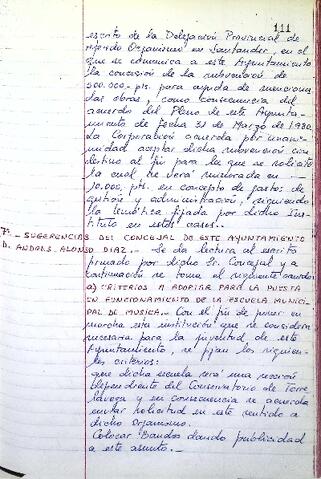 111
escrito de la Delegación Provincial de
dicho Organismo en Santander, en el
que se comunica a este Ayuntamiento
la concesión de la subvención de
500.000.-pts. para ayuda de
las obras, como consecuencia del
acuerdo del Pleno de este Ayunta-
miento de fecha 31 de Marzo de 1.980.
La Corporación acuerda por unani-
midad aceptar dicha subvención con
destino al fin para la que se solicitó
la cual se verá minorada en
10.000.pts. en concepto de gastos de
gestión y administración, siguiendo
la temática fijada por dicho Ins-
tituto en estos casos.
7º.- SUGERENCIAS DEL CONCEJAL DE ESTE AYUNTAMIENTO
D. ANDRES ALONSO DIAZ.- Se da lectura al escrito
firmado por dicho Sr. Concejal y a
continuación se toma el siguiente acuerdo:
a) CRITERIOS A ADOPTAR PARA LA PUESTA
EN FUNCIONAMIENTO DE LA ESCUELA MUNICI-
PAL DE MUSICA.- Con el fin de poner en
marcha esta institución que se considera
necesaria para la juventud de este
Ayuntamiento, se fijan los siguien-
tes criterios:
que dicha escuela será una sección
dependiente del Conservatorio de Torre
lavega y en consecuencia se acuerda
enviar solicitud en este sentido a
dicho Organismo.
Colocar Bandos dando publicidad
a este asunto.